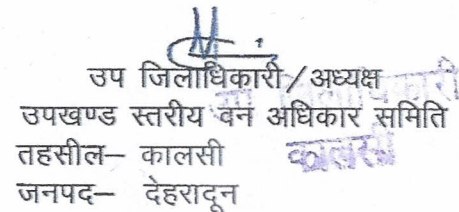 उप जिलाधिकारी/अध्यक्ष
उपखण्ड स्तरीय वन अधिकार समिति
तहसील– कालसी
जनपद– देहरादून
कालसी